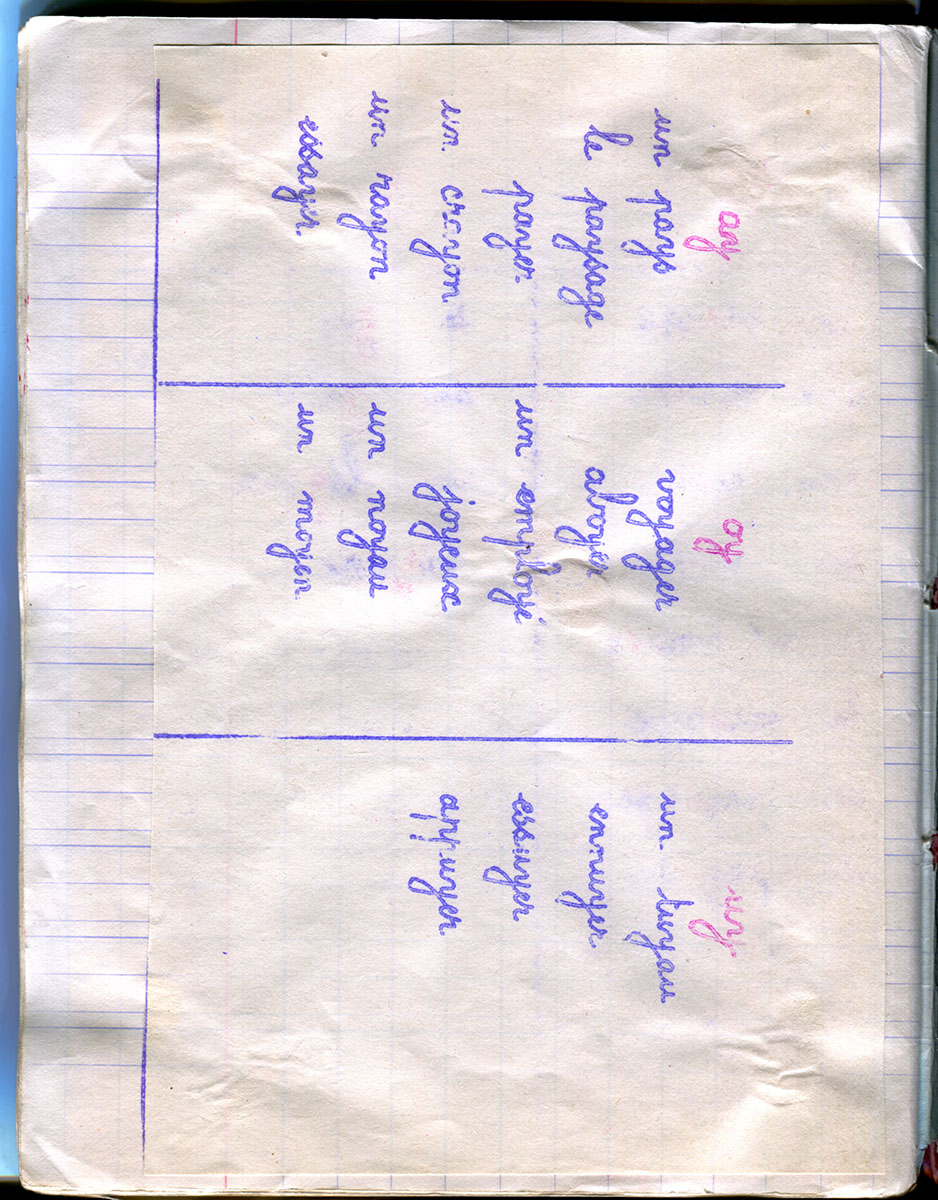 ay
un pays
le paysage
payer
un crayon
un rayon
essayer
oy
voyager
aboyer
un employé
joyeux
un noyau
un moyen
uy
un tuyau
ennuyer
essuyer
appuyer